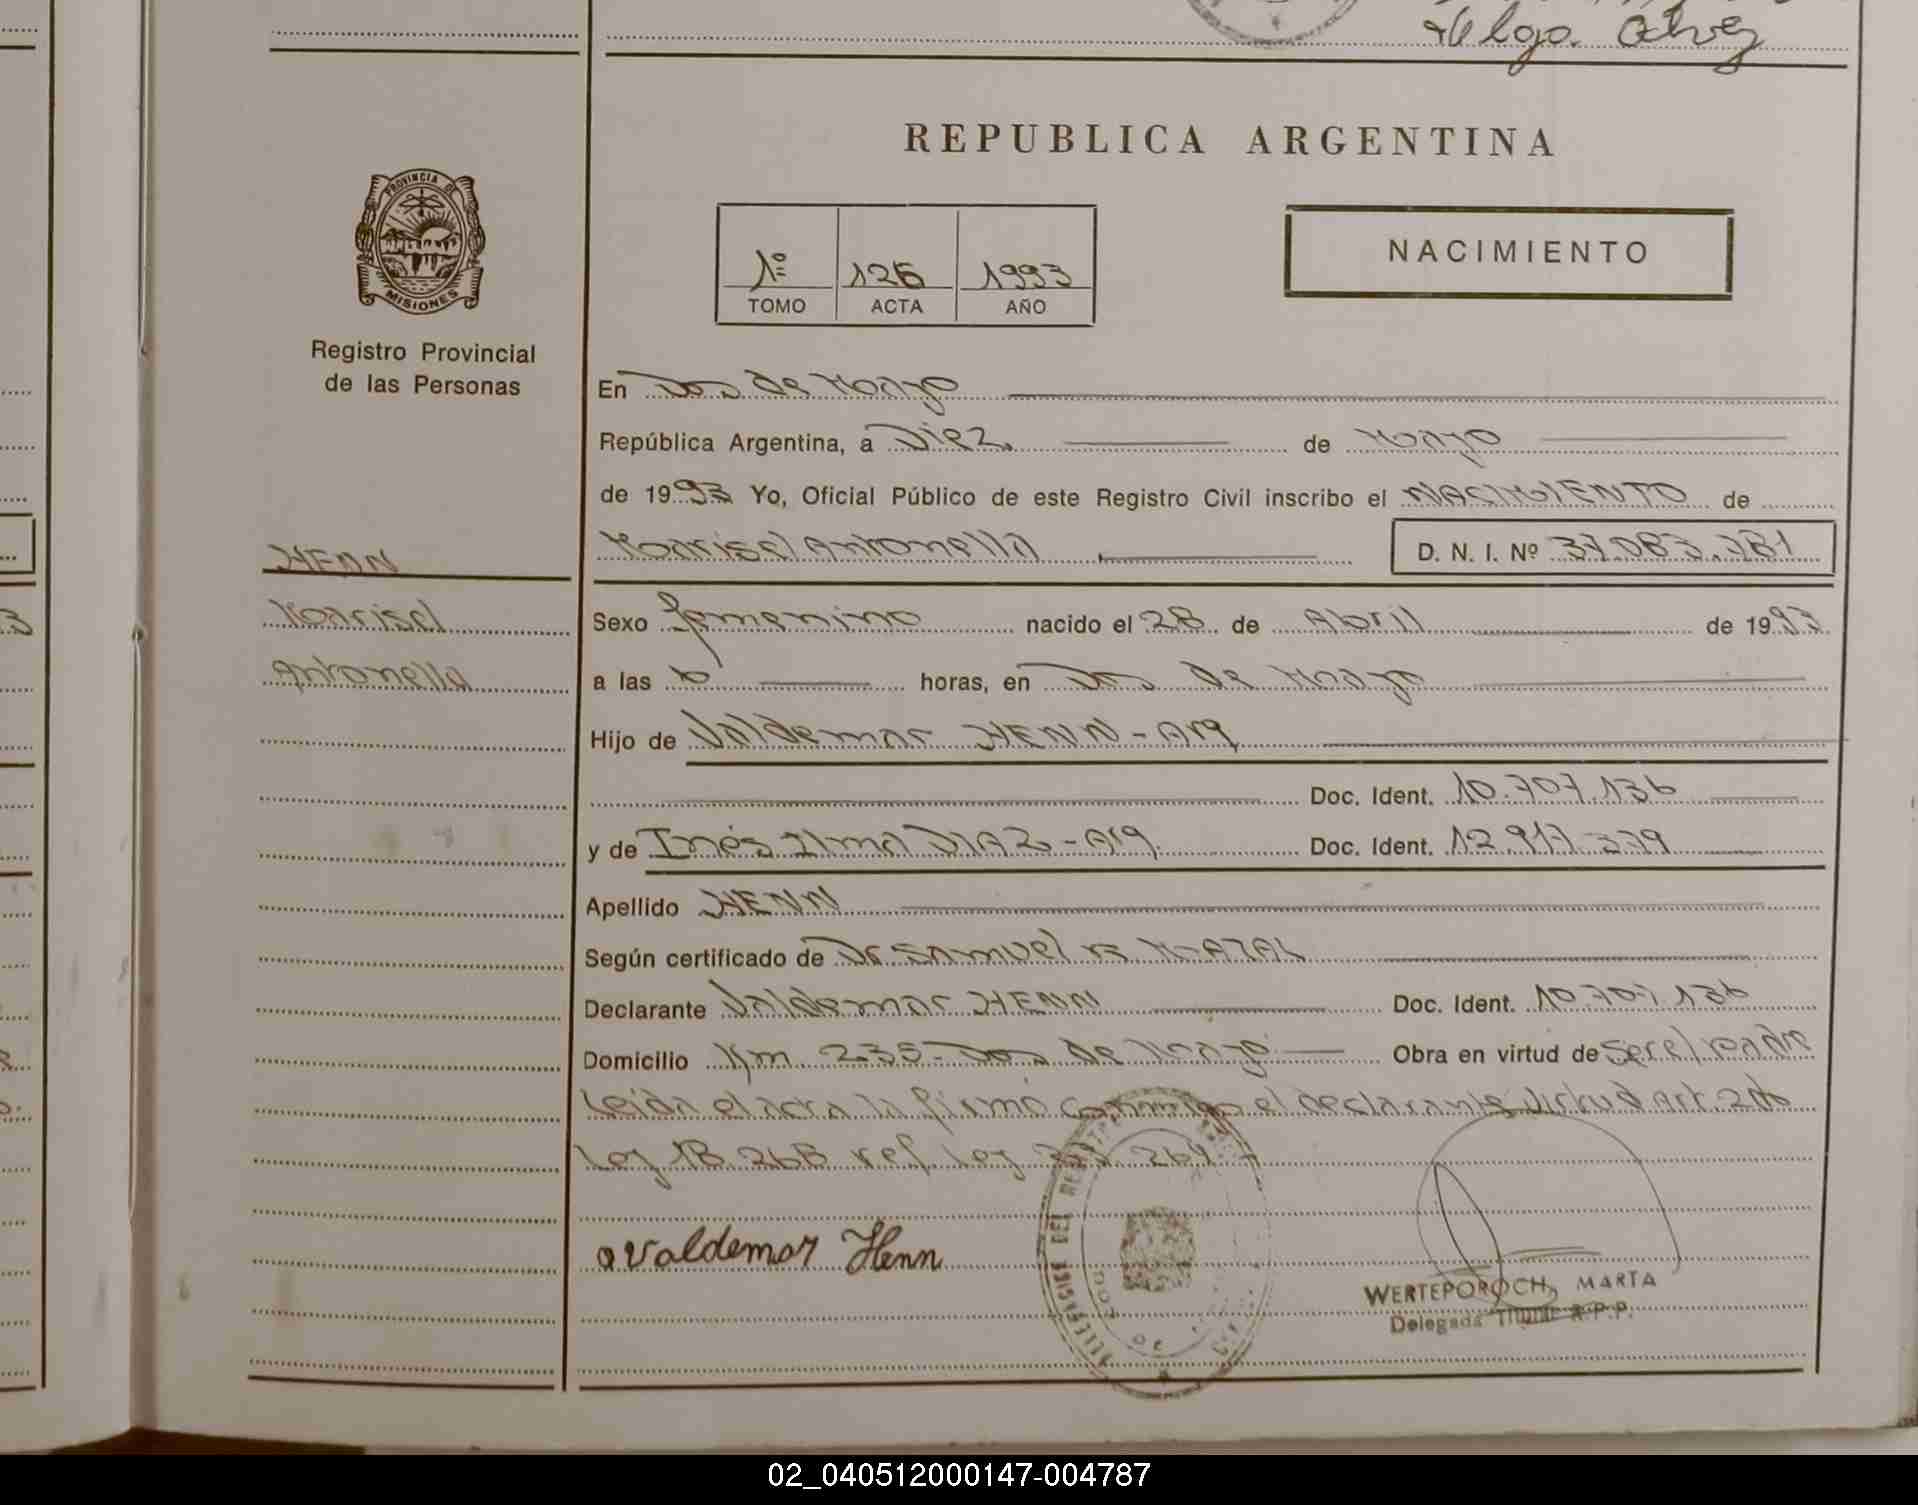 Helga Alvez
REPUBLICA ARGENTINA
PROVINCIA DE
MISIONES
Registro Provincial
de las Personas
1º 126 1993
TOMO ACTA AÑO
NACIMIENTO
En Dos de Mayo
República Argentina, a Diez de Mayo
de 1993 Yo, Oficial Público de este Registro Civil inscribo el NACIMIENTO de
HENN
Marisel Antonella
D. N. I. Nº 37.083.781
Marisel
Sexo femenino nacido el 28 de Abril de 1993
Antonella
a las 6 horas, en Dos de Mayo
Hijo de Valdemar HENN - Arg
Doc. Ident. 10.707.136
y de Inés Ilma DIAZ - Arg. Doc. Ident. 12.917.379
Apellido HENN
Según certificado de Dr Samuel
Declarante Valdemar HENN Doc. Ident. 10.707.136
Domicilio Km 235 - Dos de Mayo Obra en virtud de Ser el padre
Leida el acta la firmó conmigo el declarante Virtud Art. 2do
Ley 18.268 ref. Ley
Valdemar Henn
WERTEPOROCH, MARTA
Delegada Titular R.P.P.
02_040512000147-004787